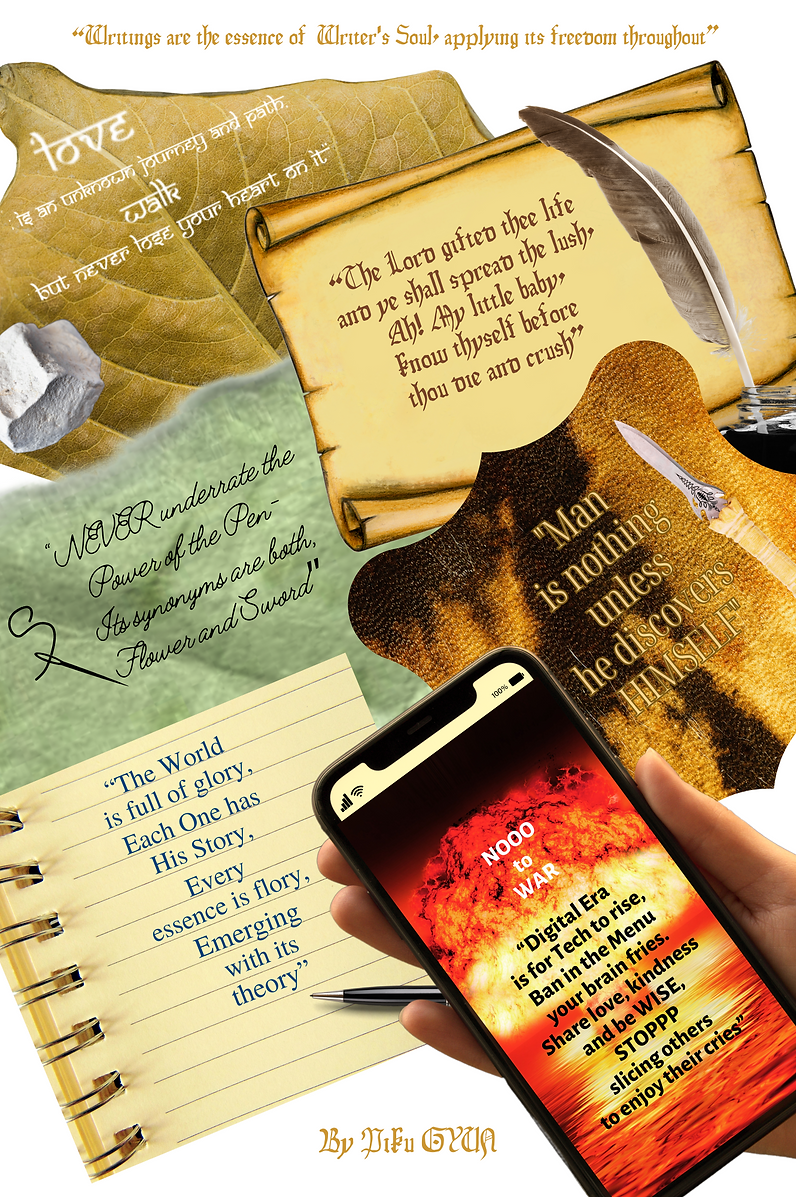 “Writings are the essence of Writer's Soul, applying its freedom throughout”
love
is an unknown journey and path.
walk
but never lose your heart on it"
“The Lord gifted thee life
and ye shall spread the lush,
Ah! My little baby,
know thyself before
thou die and crush”
“NEVER underrate the
Power of the Pen-
Its synonyms are both,
Flower and Sword"
"Man
is nothing
unless
he discovers
HIMSELF"
“The World
is full of glory,
Each One has
His Story,
Every
essence is flory,
Emerging
with its
theory”
100%
NOOO
to
WAR
“Digital Era
is for Tech to rise,
Ban in the Menu
your brain fries.
Share love, kindness
and be WISE,
STOPPP
slicing others
to enjoy their cries”
By Piku GYUN